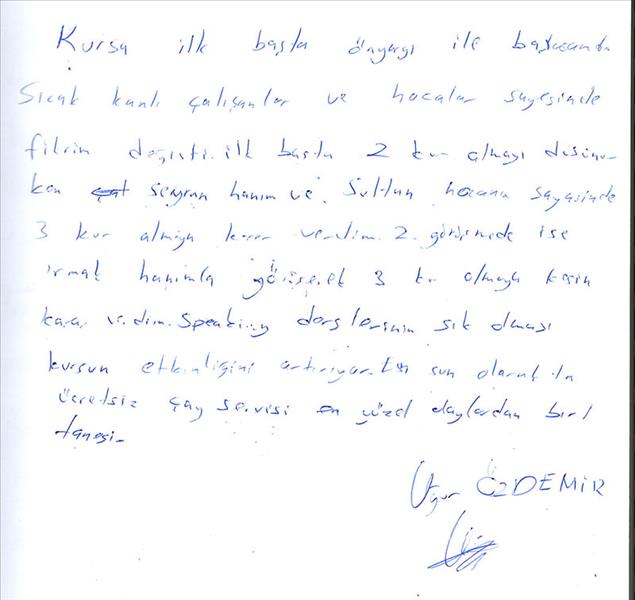 Kursa ilk başta önyargı ile başlasamda
Sıcak kanlı çalışanlar ve hocalar sayesinde
fikrim değişti. ilk başta 2 kur almayı düşünür
ken Seyran hanım ve Sultan hocanın sayesinde
3 kur almaya karar verdim. 2. görüşmede ise
ırmak hanımla görüşerek 3 kur almaya kesin
karar verdim. Speaking derslerinin sık olması
kursun etkinliğini artırıyor. En son olarakta
ücretsiz çay servisi en güzel olaylardan biri
tanesi.
Uğur ÖZDEMİR